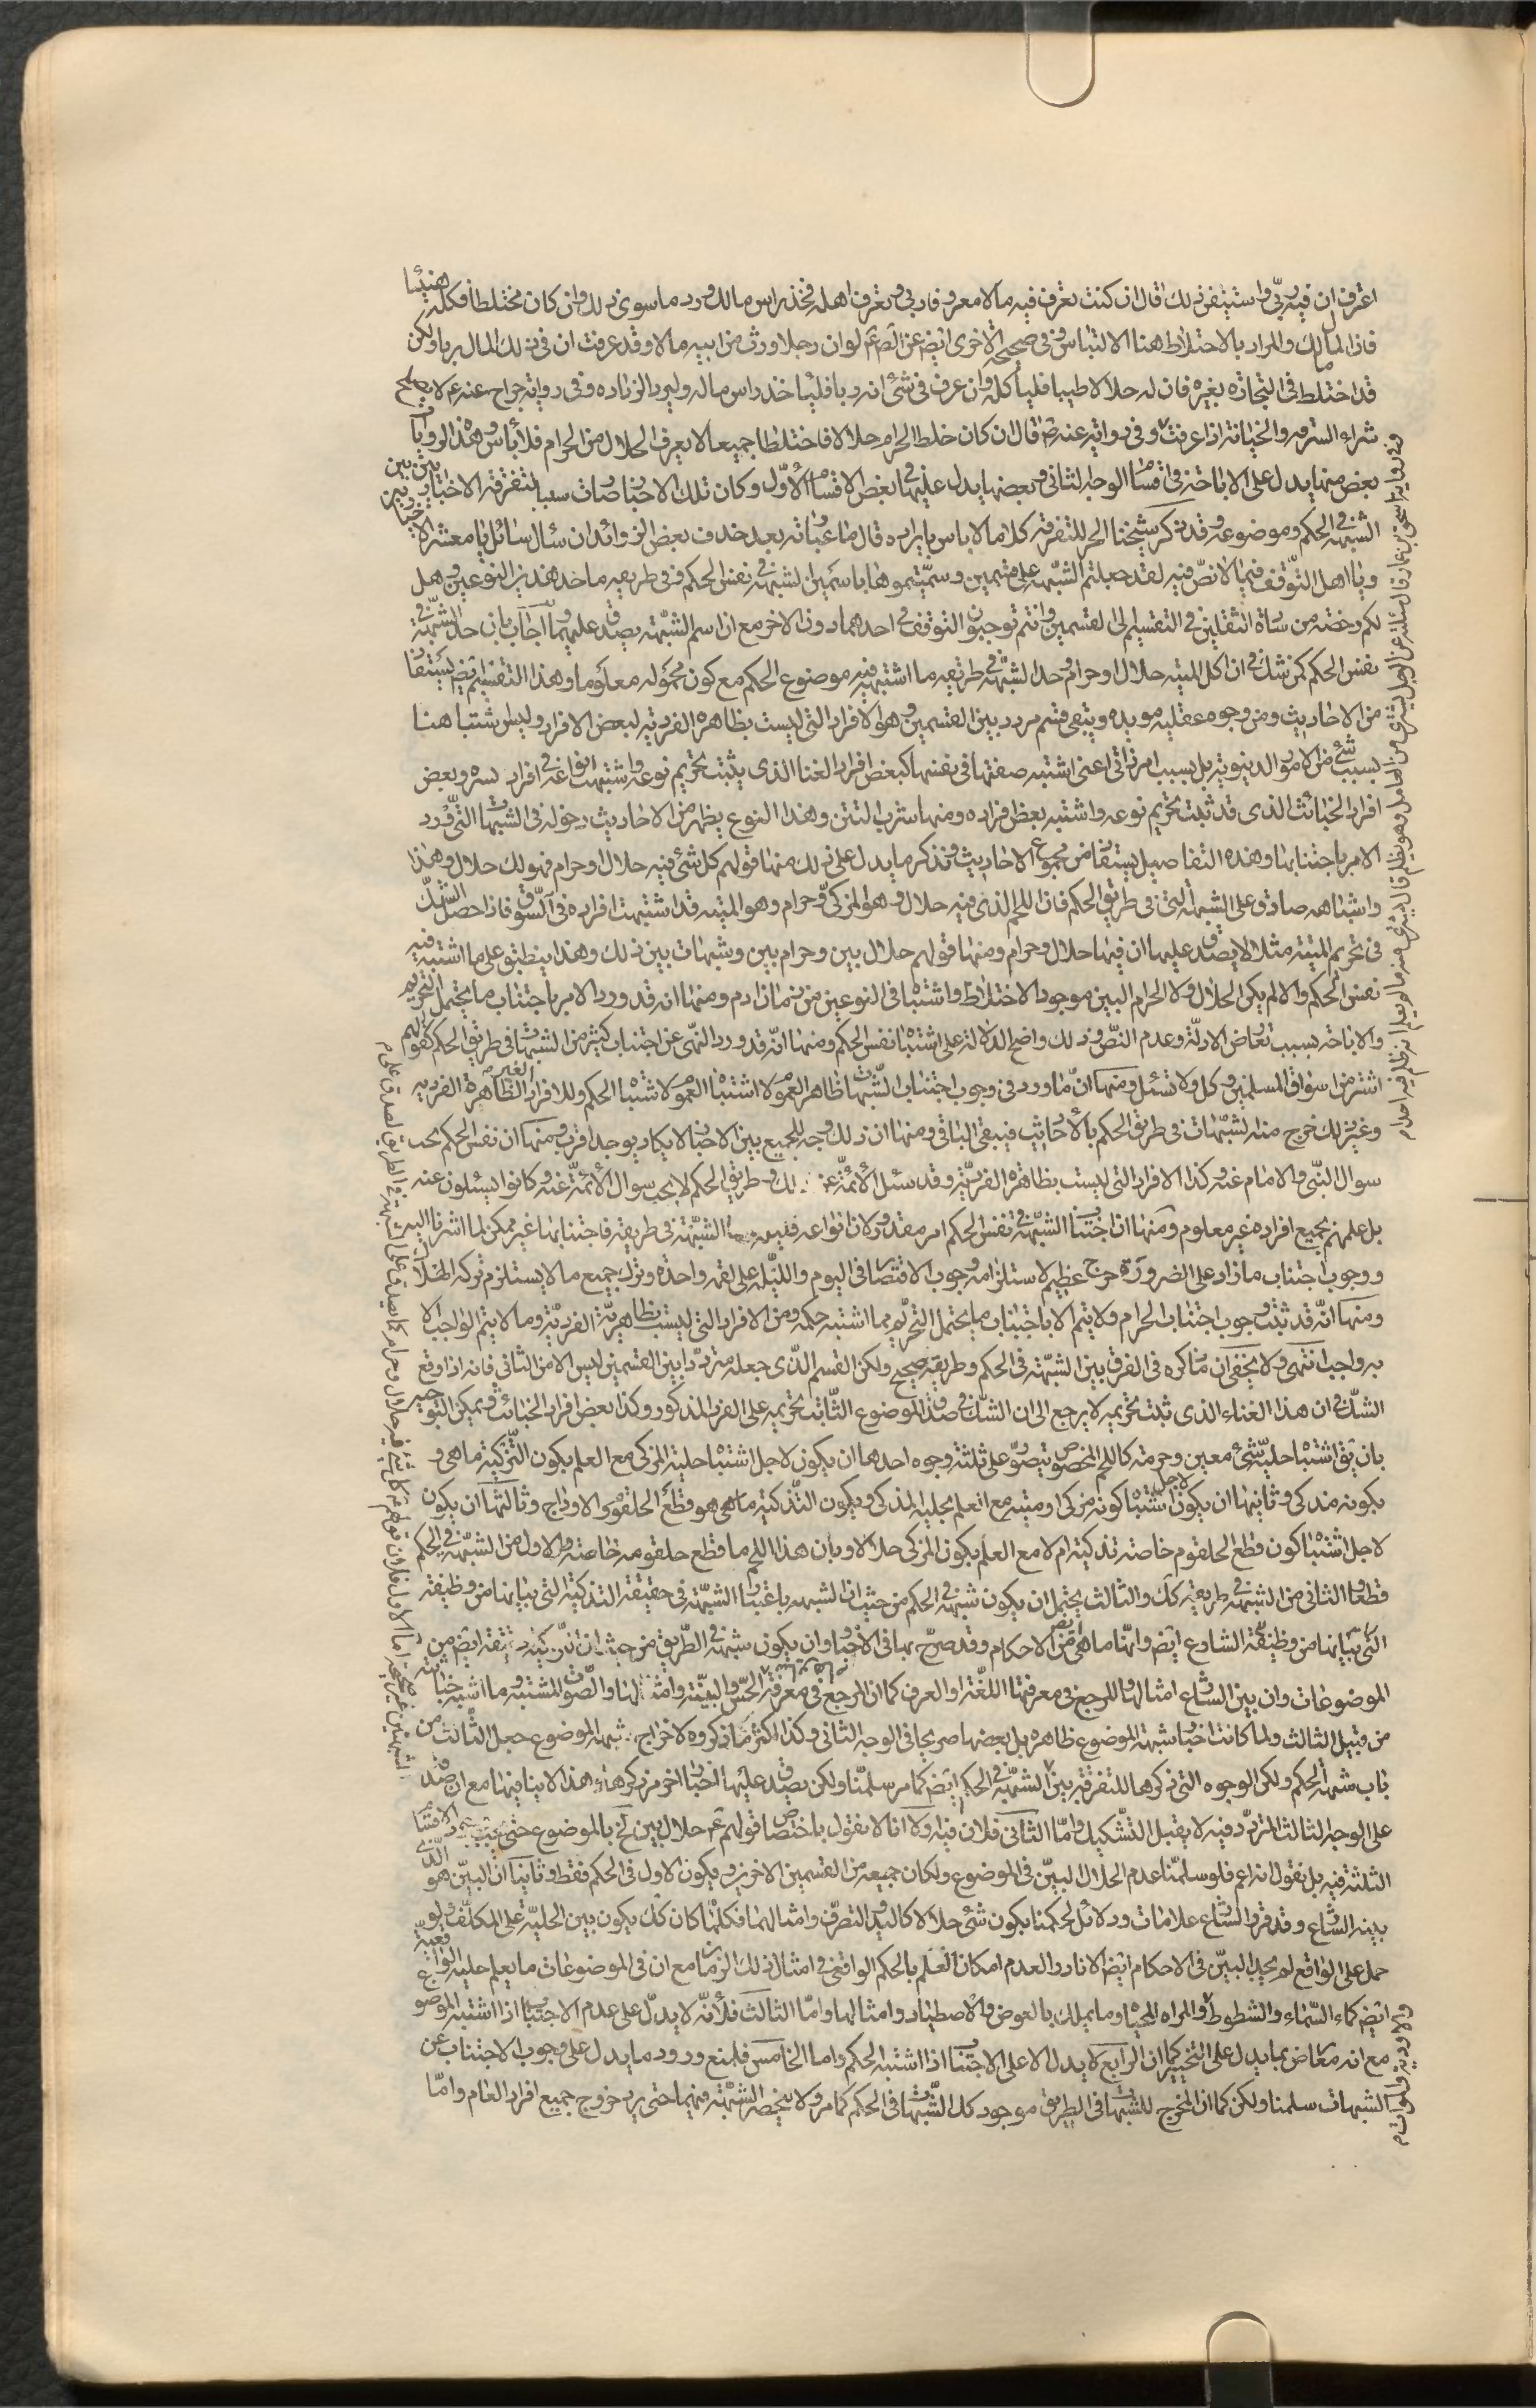 اعرف ان فيه ربى واستيقن ذلك قال ان كنت تعرف فيه مالا معروفا ربى وتعرف اهله فخذ راس مالك ورد ما سوى ذلك وان كان مختلطا فكله هنيئا
فان المال مالك والمراد بالاختلاط هنا الالتباس وفى صحيحته الاخرى ايض عن الص ع لو ان رجلا ورث من ابيه مالا وقد عرفت ان فى ذلك المال ربا ولكن
قد اختلط فى التجارة بغيره فان له حلالا طيبا فليأكله وان عرف فى شئ انه ربا فليأخذ راس ماله وليرد الزيادة وفى رواية جراح عنه ع لا يصلح
شراء السرقه والخيانة اذا عرفت وفى رواية عنه ع قال ان كان خلط الحرام حلالا فاختلطا جميعا لا يعرف الحلال من الحرام فلا بأس وهذه الروايات
بعض منها يدل على الاباحة فى اقسام الوجه الثانى وبعضها يدل عليها فى بعض الاقسام الاول وكان تلك الاخبار صارت سببا لتفرقة الاخباريين بين
الشبهة فى الحكم وموضوعه وقد ذكر شيخنا الحر للتفرقة كلاما لا باس بايراده قال ما عبارته بعد حذف بعض الزوائد ان سئال سائل يا معشر الاخباريين
ويا اهل التوقف فيما لا نص فيه لقد جعلتم الشبهة على قسمين وسميتموها باسمين الشبهة فى نفس الحكم وفى طريقه ما حد هذين النوعين وهل
لكم رخصة من سادة الثقلين فى التقسيم الى القسمين وانتم توجبون التوقف فى احدهما دون الاخر مع ان اسم الشبهة يصدق عليهما اجاب بان حد الشبهة فى
نفس الحكم كمن شك فى ان اكل الميتة حلال او حرام وحد الشبهة فى طريقه ما اشتبه فيه موضوع الحكم مع كون محموله معلوما وهذا التقسيم ايض يستفاد
من الاحاديث ومن وجوه عقليه مويده ويبقى قسم مردد بين القسمين وهو الافراد التى ليست بظاهرة الفردية لبعض الافراد وليس اشتباهنا
بسبب شئ من الامور الدنيوية بل بسبب امر ذاتى اعنى اشتبه صفتها فى نفسها كبعض افراد الغنا الذى يثبت تحريم نوعه واشتبهت انواعه فى افراد يسيره وبعض
افراد الخبائث الذى قد ثبت تحريم نوعه واشتبه بعض افراده ومنها شرب التتن وهذا النوع يظهر من الاحاديث دخوله فى الشبهات التى ورد
الامر باجتنابها وهذه التفاصيل يستفاد من مجموع الاحاديث ونذكر ما يدل على ذلك منها قولهم كل شئ فيه حلال وحرام فهو لك حلال وهذا
واشباهه صادق على الشبهة التى فى طريق الحكم فان اللحم الذى فيه حلال وهو المزكى وحرام وهو الميته قد اشتبهت افراده فى السوق فاذا حصل الشك
فى تحريم الميتة مثلا لا يصدق عليها ان فيها حلال وحرام ومنها قولهم حلال بين وحرام بين وشبهات بين ذلك وهذا ينطبق على ما اشتبه فيه
نفس الحكم والا لم يكن الحلال ولا الحرام البين موجود الاختلاط واشتباه فى النوعين من زمان ادم ومنها انه قد ورد الامر باجتناب ما يحتمل التحريم
والاباحه بسبب تعارض الادلة وعدم النص وذلك واضح الدلالة على اشتباه نفس الحكم ومنها انه قد ورد النهى عن اجتناب كثير من الشبهات فى طريق الحكم كقولهم
اشتر من اسواق المسلمين وكل ولا تسئل ومنها ان ما ورد فى وجوب اجتناب الشبهات ظاهر العموم لاشتباه الحكم وللافراد الغير الظاهرة الفرديه
وغير ذلك خرج منه الشبهات فى طريق الحكم بالاحاديث فيبقى الباقى ومنها ان ذلك وجه للجميع بين الاخبار لا يكاد يوجد اقرب ومنها ان نفس الحكم يجب
سوال النبى والامام عنه وكذا الافراد التى ليست بظاهرة الفردية وقد سئل الائمة عن ذلك وطريق الحكم لا يجب سوال الائمة عنه وكانوا يسئلون عنه
بل علمهم بجميع افراده غير معلوم ومنها ان اجتناب الشبهة فى نفس الحكم امر مقدور لان انواعه قليله الشبهة فى طريقه فاجتنابها غير ممكن لما اشرنا اليه
ووجوب اجتناب ما زاد على الضرورة حرج عظيم لاستلزامه وجوب الاقتصار فى اليوم والليلة على لقمه واحدة وترك جميع ما لا يستلزم تركه الهلاك
ومنها انه قد ثبت وجوب اجتناب الحرام ولا يتم الا باجتناب ما يحتمل التحريم مما اشتبه حكمه ومن الافراد التى ليست بظاهرية الفردية وما لا يتم الواجب الا
به واجب انتهى ولا يخفى ان ما ذكره فى الفرق بين الشبهة فى الحكم وطريقه صحيح ولكن القسم الذى جعله مترددا بين القسمين ليس الا من الثانى فانه اذا وقع
الشك فى ان هذا الغناء الذى ثبت تحريمه لا يرجع الى ان الشك فى صدق الموضوع الثابت تحريمه على الفرد المذكور وكذا بعض افراد الخبائث ويمكن التوجيه
بان يق اشتباه حلية شئ معين وحرمته كاللحم المخصوص يتصور على ثلثة وجوه احدها ان يكون لاجل اشتباه حلية المزكى مع العلم بكون التزكية ما هى و
بكونه مذكى وثانيها ان يكون لاجل اشتباه كونه مزكى او ميتة مع العلم بحلية المذكى وبكون التذكية ما هى هو قطع الحلقوم والاوداج وثالثها ان يكون
لاجل اشتباه كون قطع الحلقوم خاصة تذكية ام لا مع العلم بكون المزكى حلالا وبان هذا اللحم ما قطع حلقومه خاصة والاول من الشبهة فى الحكم
قطعا والثانى من الشبهة فى طريقه كك والثالث يحتمل ان يكون شبهة فى الحكم من حيث ان الشبهه باعتبار الشبهة فى حقيقة التذكية التى بيانها من وظيفة
التى بيانها من وظيفة الشارع ايض وانما ما هى ايض من الاحكام وقد صرح بها فى الاخبار وان يكون شبهة فى الطريق من حيث ان تذكيته حقيقة ايض من
الموضوعات وان بين الشارع امثالها والمرجع فى معرفتها اللغة او العرف كما ان المرجع فى معرفة الحس والبينة وامثالها والصوت المشتبه وما اشتبه خباثته
من قبيل الثالث ولما كانت اخبار شبهة الموضوع ظاهره بل بعضها صريحا فى الوجه الثانى وكذا اكثر ما ذكروه لاخراج شبهة الموضوع جعل الثالث من
باب شبهة الحكم ولكن الوجوه التى ذكرها للتفرقة بين الشبهة فى الحكم ايض كما مر سلمنا ولكن يصدق عليها اخبار اخر مر ذكرها وهذه لا ينافيها مع ان صدقه
على الوجه الثالث المتردد فيه لا يقبل التشكيك واما الثانى فلان فيه اولا انا لا نقول باختصاص قولهم ع حلال بين الخ بالموضوع حتى يثبت عدم الاقسام
الثلثة فيه بل نقول انه اعم فلو سلمنا عدم الحلال البين فى الموضوع ولكان جميعه من القسمين الاخرين ويكون الاول فى الحكم فقط وثانيا ان البين هو الذى
بينه الشارع وقد قرر الشارع علامات ودلائل لحكمنا بكون شئ حلالا كاليد والتصرف وامثالهما فكلما كان كك يكون بين الحلية على المكلف ولو
حمل على الواقع لم يجد البين فى الاحكام ايض الا نادرا لعدم امكان العلم بالحكم الواقعى فى امثال ذلك الزمان مع ان فى الموضوعات ما يعلم حليه الواقعية
ايض كماء السماء والشطوط والمراه المحياة وما يملك بالعوض والاصطياد وامثالها واما الثالث فلانه لا يدل على عدم الاجتناب اذا اشتبه الموضوع
مع انه معارض بما يدل على التخيير كما ان الرابع لا يدل الا على الاجتناب اذا اشتبه الحكم واما الخامس فلمنع ورود ما يدل على وجوب الاجتناب عن
الشبهات سلمنا ولكن كما ان المخرج للشبهات فى الطريق موجود كك الشبهات فى الحكم كما مر ولا ينحصر الشبهة فيهما حتى يرد خروج جميع افراد العام واما
وفى رواية اسحق بن عمار قال سئلته عن الرجل يشترى من العامل وهو يظلم قال يشترى منه ما لم يعلم انه ظلم فيه احدا م